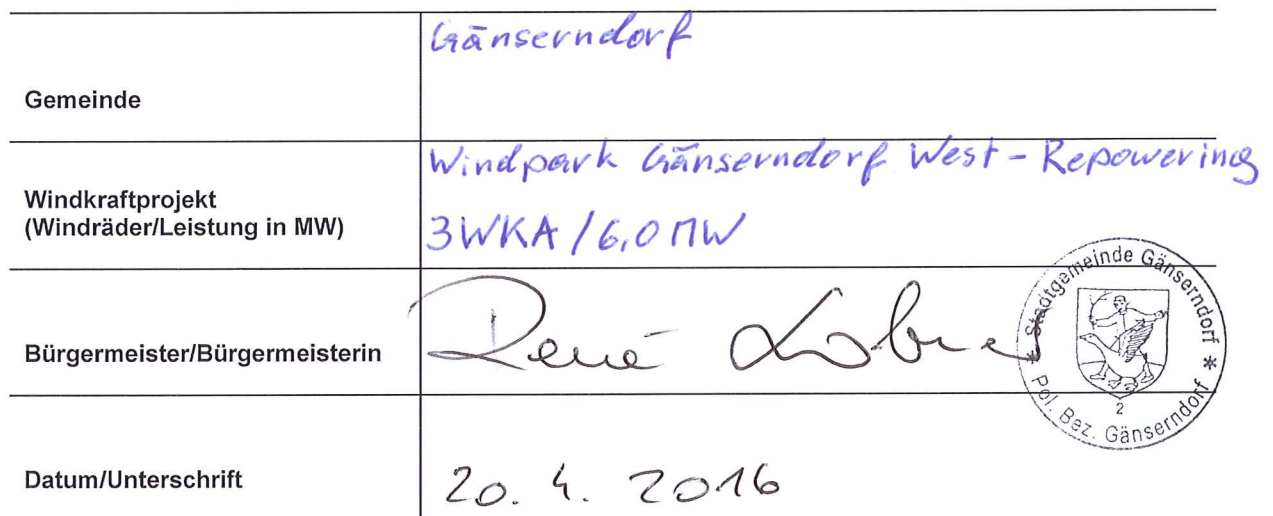 Gemeinde
Gänserndorf
Windkraftprojekt
(Windräder/Leistung in MW)
Windpark Gänserndorf West - Repowering
3WKA / 6,0 MW
Bürgermeister/Bürgermeisterin
René Lobner
Stadtgemeinde Gänserndorf
* Pol. Bez. Gänserndorf *
2
Datum/Unterschrift
20. 4. 2016